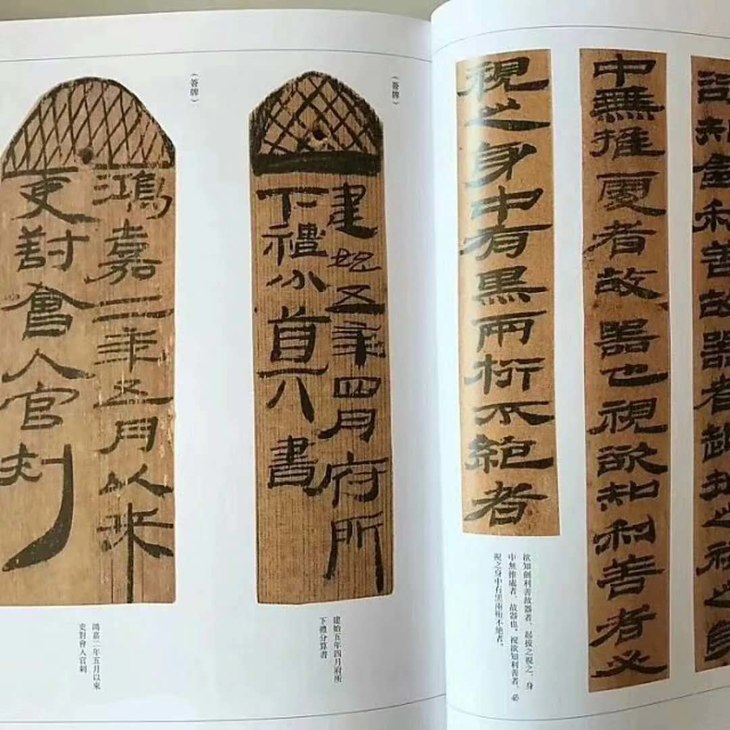 欲知劍利善故器者起拔之視之身
中無推處者故器也視欲知利善者必
視之身中有黑兩桁不絕者
欲知劍利善故器者、起拔之視之、身
中無推處者、故器也。視欲知利善者、必
視之身中有黑兩桁不絕者。
（簽牌）
建始五年四月府所
下禮分算書
建始五年四月府所
下禮分算書
（簽牌）
鴻嘉二年五月以來
吏對會入官刺
鴻嘉二年五月以來
吏對會入官刺